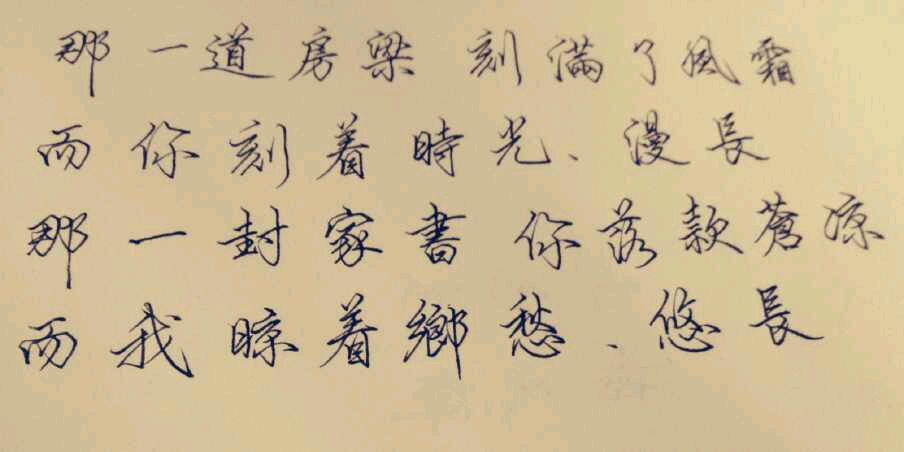 那一道房梁 刻滿了風霜
而你刻着時光、漫長
那一封家書 你落款蒼涼
而我晾着鄉愁、悠長